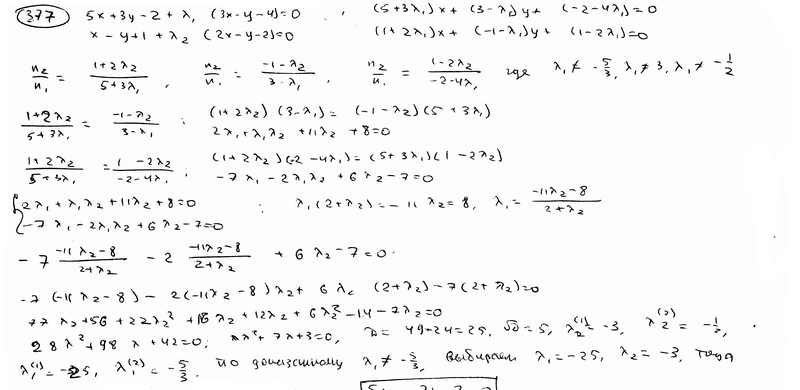 377 5x+3y-2+λ₁(3x-y-4)=0 , (5+3λ₁)x+(3-λ₁)y+(-2-4λ₁)=0
x-y+1+λ₂(2x-y-2)=0 (1+2λ₂)x+(-1-λ₂)y+(1-2λ₂)=0
n₂/n₁ = (1+2λ₂)/(5+3λ₁), n₂/n₁ = (-1-λ₂)/(3-λ₁), n₂/n₁ = (1-2λ₂)/(-2-4λ₁) где λ₁≠-5/3, λ₁≠3, λ₁≠-1/2
(1+2λ₂)/(5+3λ₁) = (-1-λ₂)/(3-λ₁) ; (1+2λ₂)(3-λ₁)=(-1-λ₂)(5+3λ₁)
2λ₁+λ₁λ₂+11λ₂+8=0
(1+2λ₂)/(5+3λ₁) = (1-2λ₂)/(-2-4λ₁) ; (1+2λ₂)(-2-4λ₁)=(5+3λ₁)(1-2λ₂)
-7λ₁-2λ₁λ₂+6λ₂-7=0
{2λ₁+λ₁λ₂+11λ₂+8=0 ; λ₁(2+λ₂)=-11λ₂=8, λ₁=(-11λ₂-8)/(2+λ₂)
-7λ₁-2λ₁λ₂+6λ₂-7=0
-7 (-11λ₂-8)/(2+λ₂) - 2 (-11λ₂-8)/(2+λ₂) + 6λ₂-7=0.
-7(-11λ₂-8)-2(-11λ₂-8)λ₂+6λ₂(2+λ₂)-7(2+λ₂)=0
77λ₂+56+22λ₂²+16λ₂+12λ₂+6λ₂²-14-7λ₂=0
28λ²+98λ+42=0; 2λ²+7λ+3=0, D=49-24=25, √D=5, λ₂⁽¹⁾=-3, λ₂⁽²⁾=-1/2,
λ₁⁽¹⁾=-25, λ₁⁽²⁾=-5/3. По доказанному λ₁≠-5/3, выбираем λ₁=-25, λ₂=-3, тогда